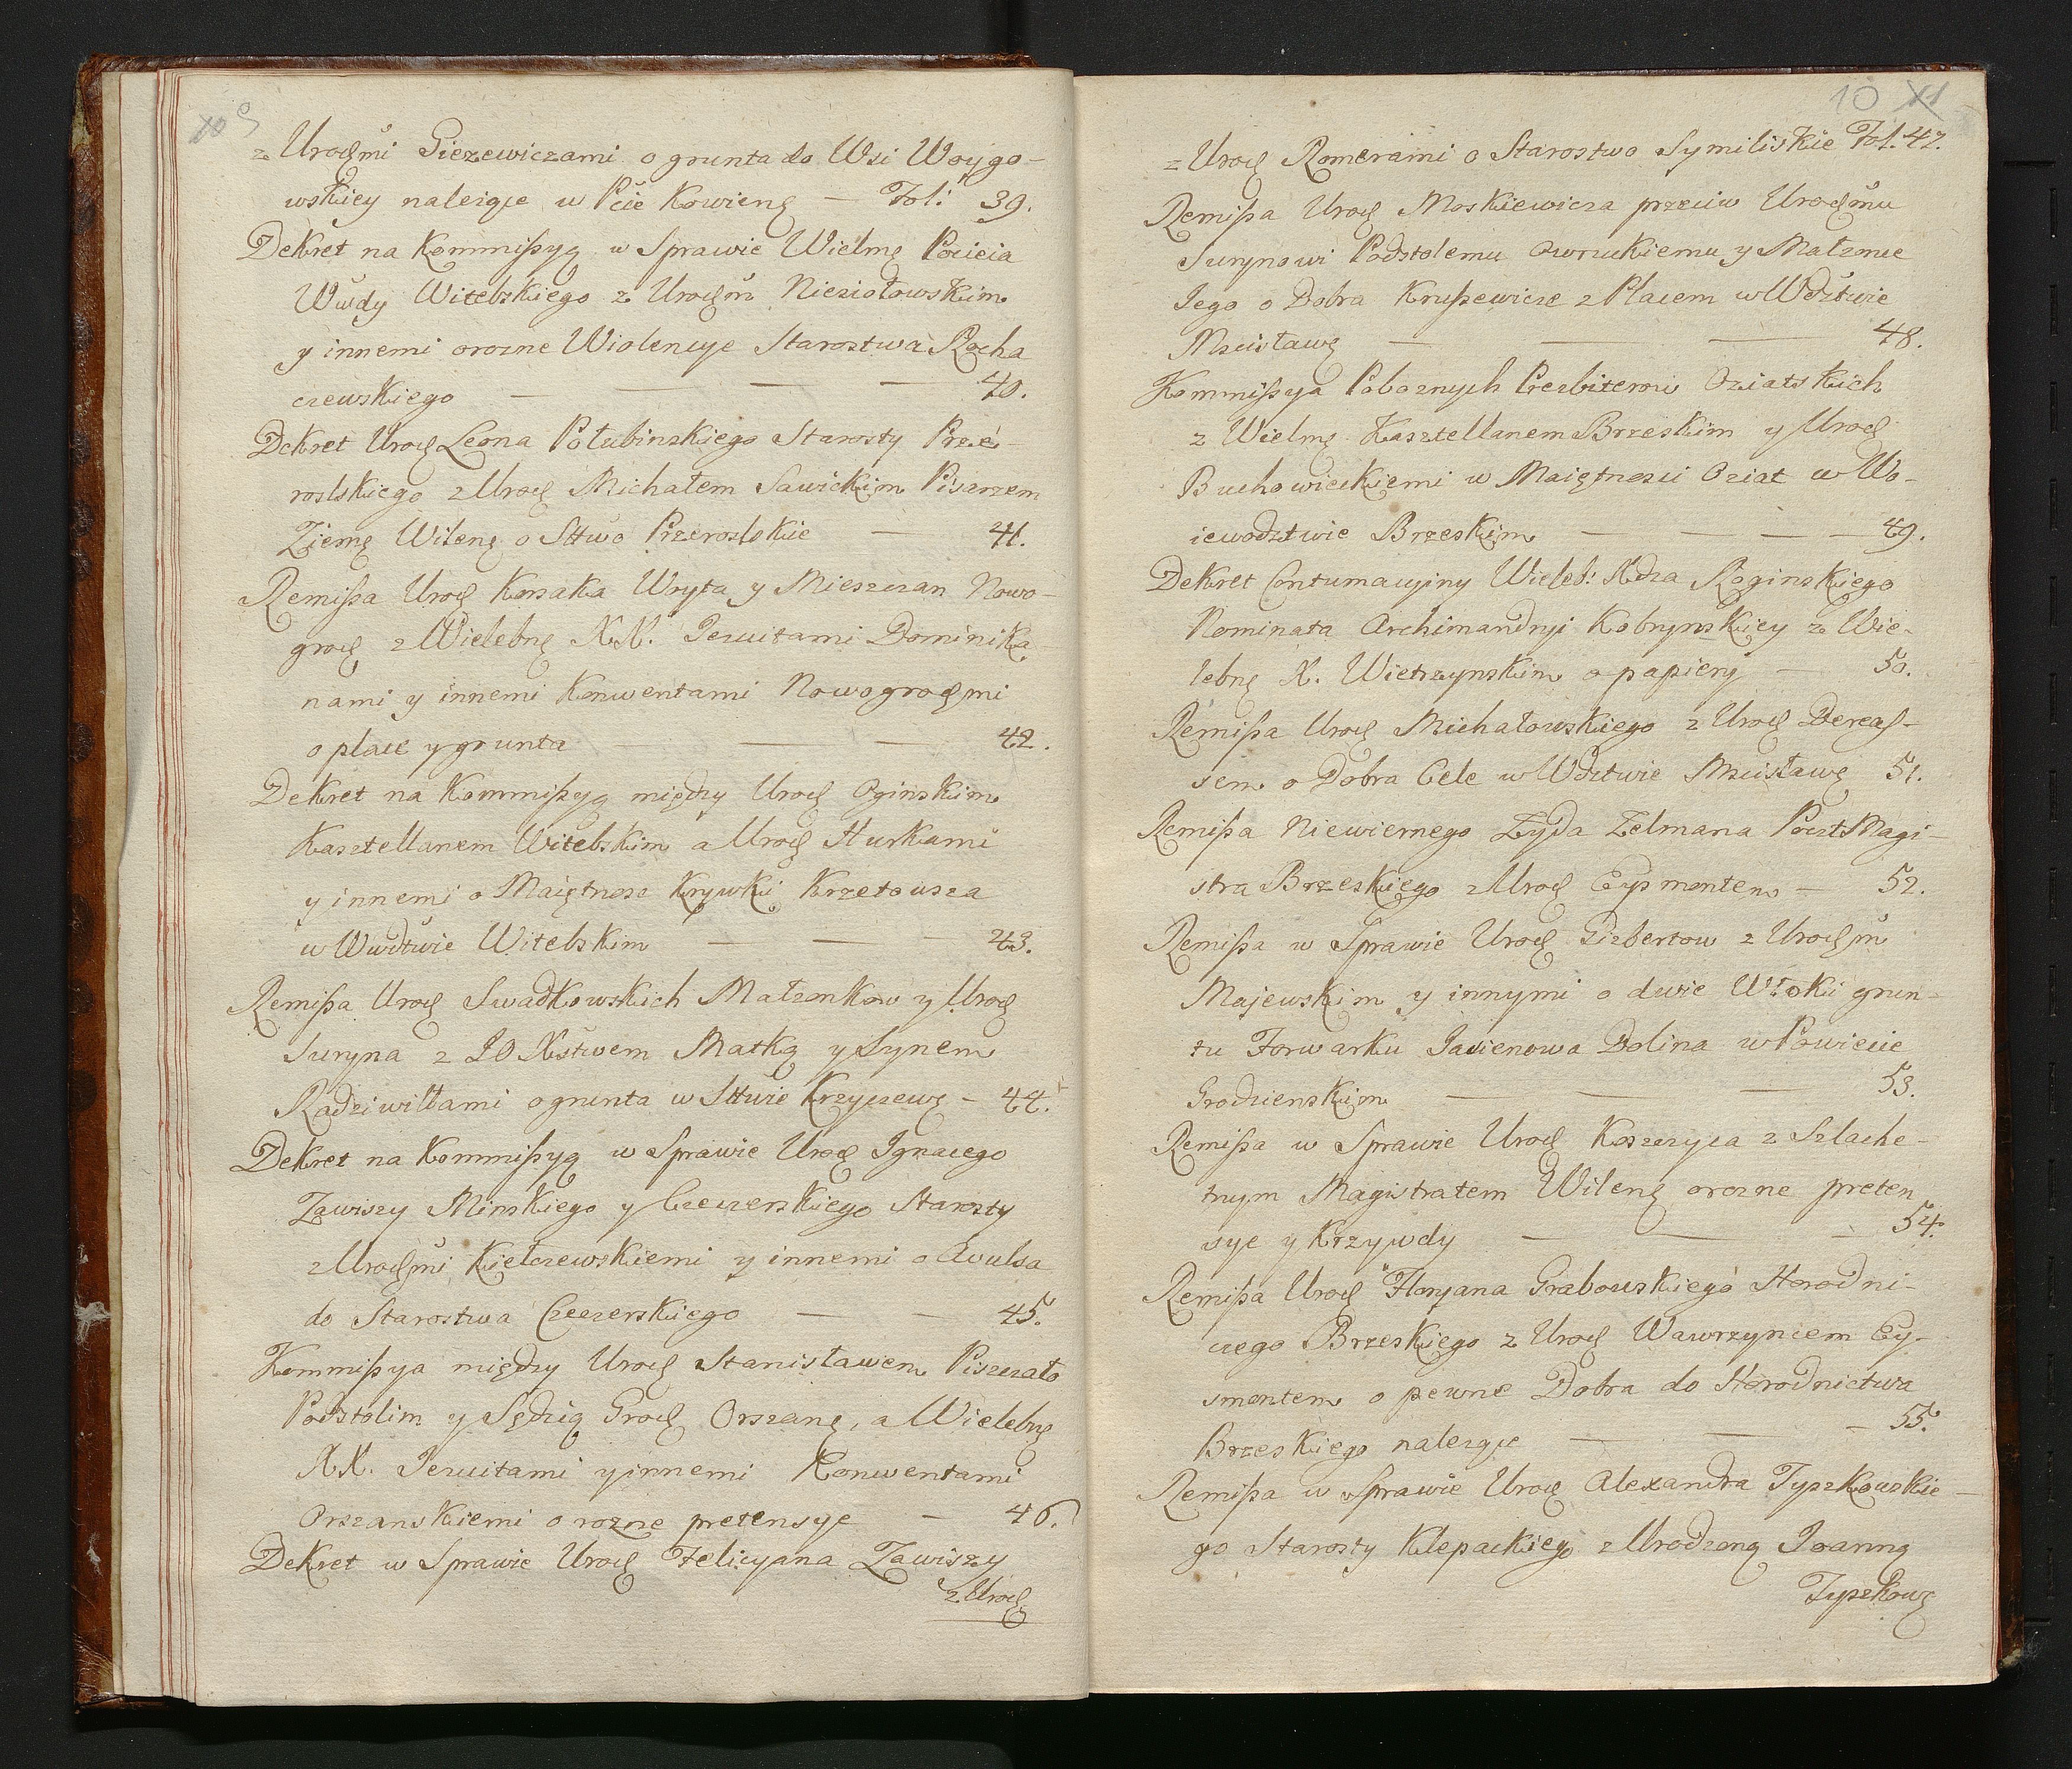 10 9
z Urodz̃mi Giezewiczami o grunta do Wsi Woygo-
wskiey nalezące w Pcie Kowieng — Fol: 39.
Dekret na Kommißyą w Sprawie Wielmę Pocieia
Wwdy Witebskiego z Urodz̃m Niesiołowskim
y innemi o rozne Wiolencye Starostwa Rocha
czewskiego — — — — 40.
Dekret Urodz Leona Połubinskiego Starosty Prze-
roslskiego z Urodz Michałem Sawickim Pisarzem
Ziemę Wileng o Sttwo Przeroslskie — 41.
Remißa Urodz Korsaka Wryta y Mieszczan Nowo-
grodz z Wielebnę XX. Jezuitami Dominika
nami y innemi Konwentami Nowogrodz̃mi
o place y grunta — — 42.
Dekret na Kommißyą między Urodz Oginskim
Kasztellanem Witebskim a Urodz Hurkami
y innemi o Maiętnosc Krywki Krzetousza
w Wwdztwie Witebskim — — — 43.
Remißa Urodz Swadkowskich Małzonkow y Urodz
Suryna z JO Xstwem Matką y Synem
Radziwiłłami o grunta w Sttwie Krzyczewę — 44.
Dekret na Kommißyą w Sprawie Urodz Ignacego
Zawiszy Minskiego y Czeczerskiego Starosty
z Urodz̃mi Kiełczewskiemi y innemi o Avulsa
do Starostwa Czeczerskiego — — 45.
Kommißya między Urodz Stanisławem Piszczało
Podstolim y Sędzią Grodz Orszanę, a Wielebnę
XX. Jezuitami y innemi Konwentami
Orszanskiemi o rozne pretensye — 46.
Dekret w Sprawie Urodz Felicyana Zawiszy
z Urodz
10 11
z Urodz Romerami o Starostwo Symiliskie Fol. 47.
Remißa Urodz Moskiewicza przeciw Urodz̃mu
Surynowi Podstolemu Owruckiemu y Małzonce
Jego o Dobra Krußewicze z Placem w Wdztwie
Mscisławę — — — 48.
Kommißya Poboznych Prezbiterow Oziatskich
z Wielmę Kasztellanem Brzeskim y Urodz
Buchowieckiemi w Maiętnosci Oziat w Wo-
iewodztwie Brzeskim — — — — 49.
Dekret Contumacyiny Wieleb: Xdza Roginskiego
Nominata Archimandryi Kobrynskiey z Wie-
lebnę X. Wietrzynskim o papiery — 50.
Remißa Urodz Michałowskiego z Urodz Deręß-
sem o Dobra Cele w Wdztwie Mscisławę 51.
Remißa Niewiernego Zyda Zelmana PocztMagi-
stra Brzeskiego z Urodz Eysmontem — 52.
Remißa w Sprawie Urodz Gizbertow z Urodz̃m
Majewskim y innymi o dwie Włoki grun-
tu Forwarku Jasienowa Dolina w Powiecie
Grodzienskim — — — 53.
Remißa w Sprawie Urodz Koszczyca z Szlache-
tnym Magistratem Wileng o rozne preten
sye y Krzywdy — — — 54.
Remißa Urodz Floryana Grabowskiego Horodni-
czego Brzeskiego z Urodz Wawrzyncem Ey-
smontem o pewne Dobra do Horodnictwa
Brzeskiego nalezące — — — 55.
Remißa w Sprawie Urodz Alexandra Tyszkowskie-
go Starosty Klepackiego z Urodzoną Joanną
Tyszkowę